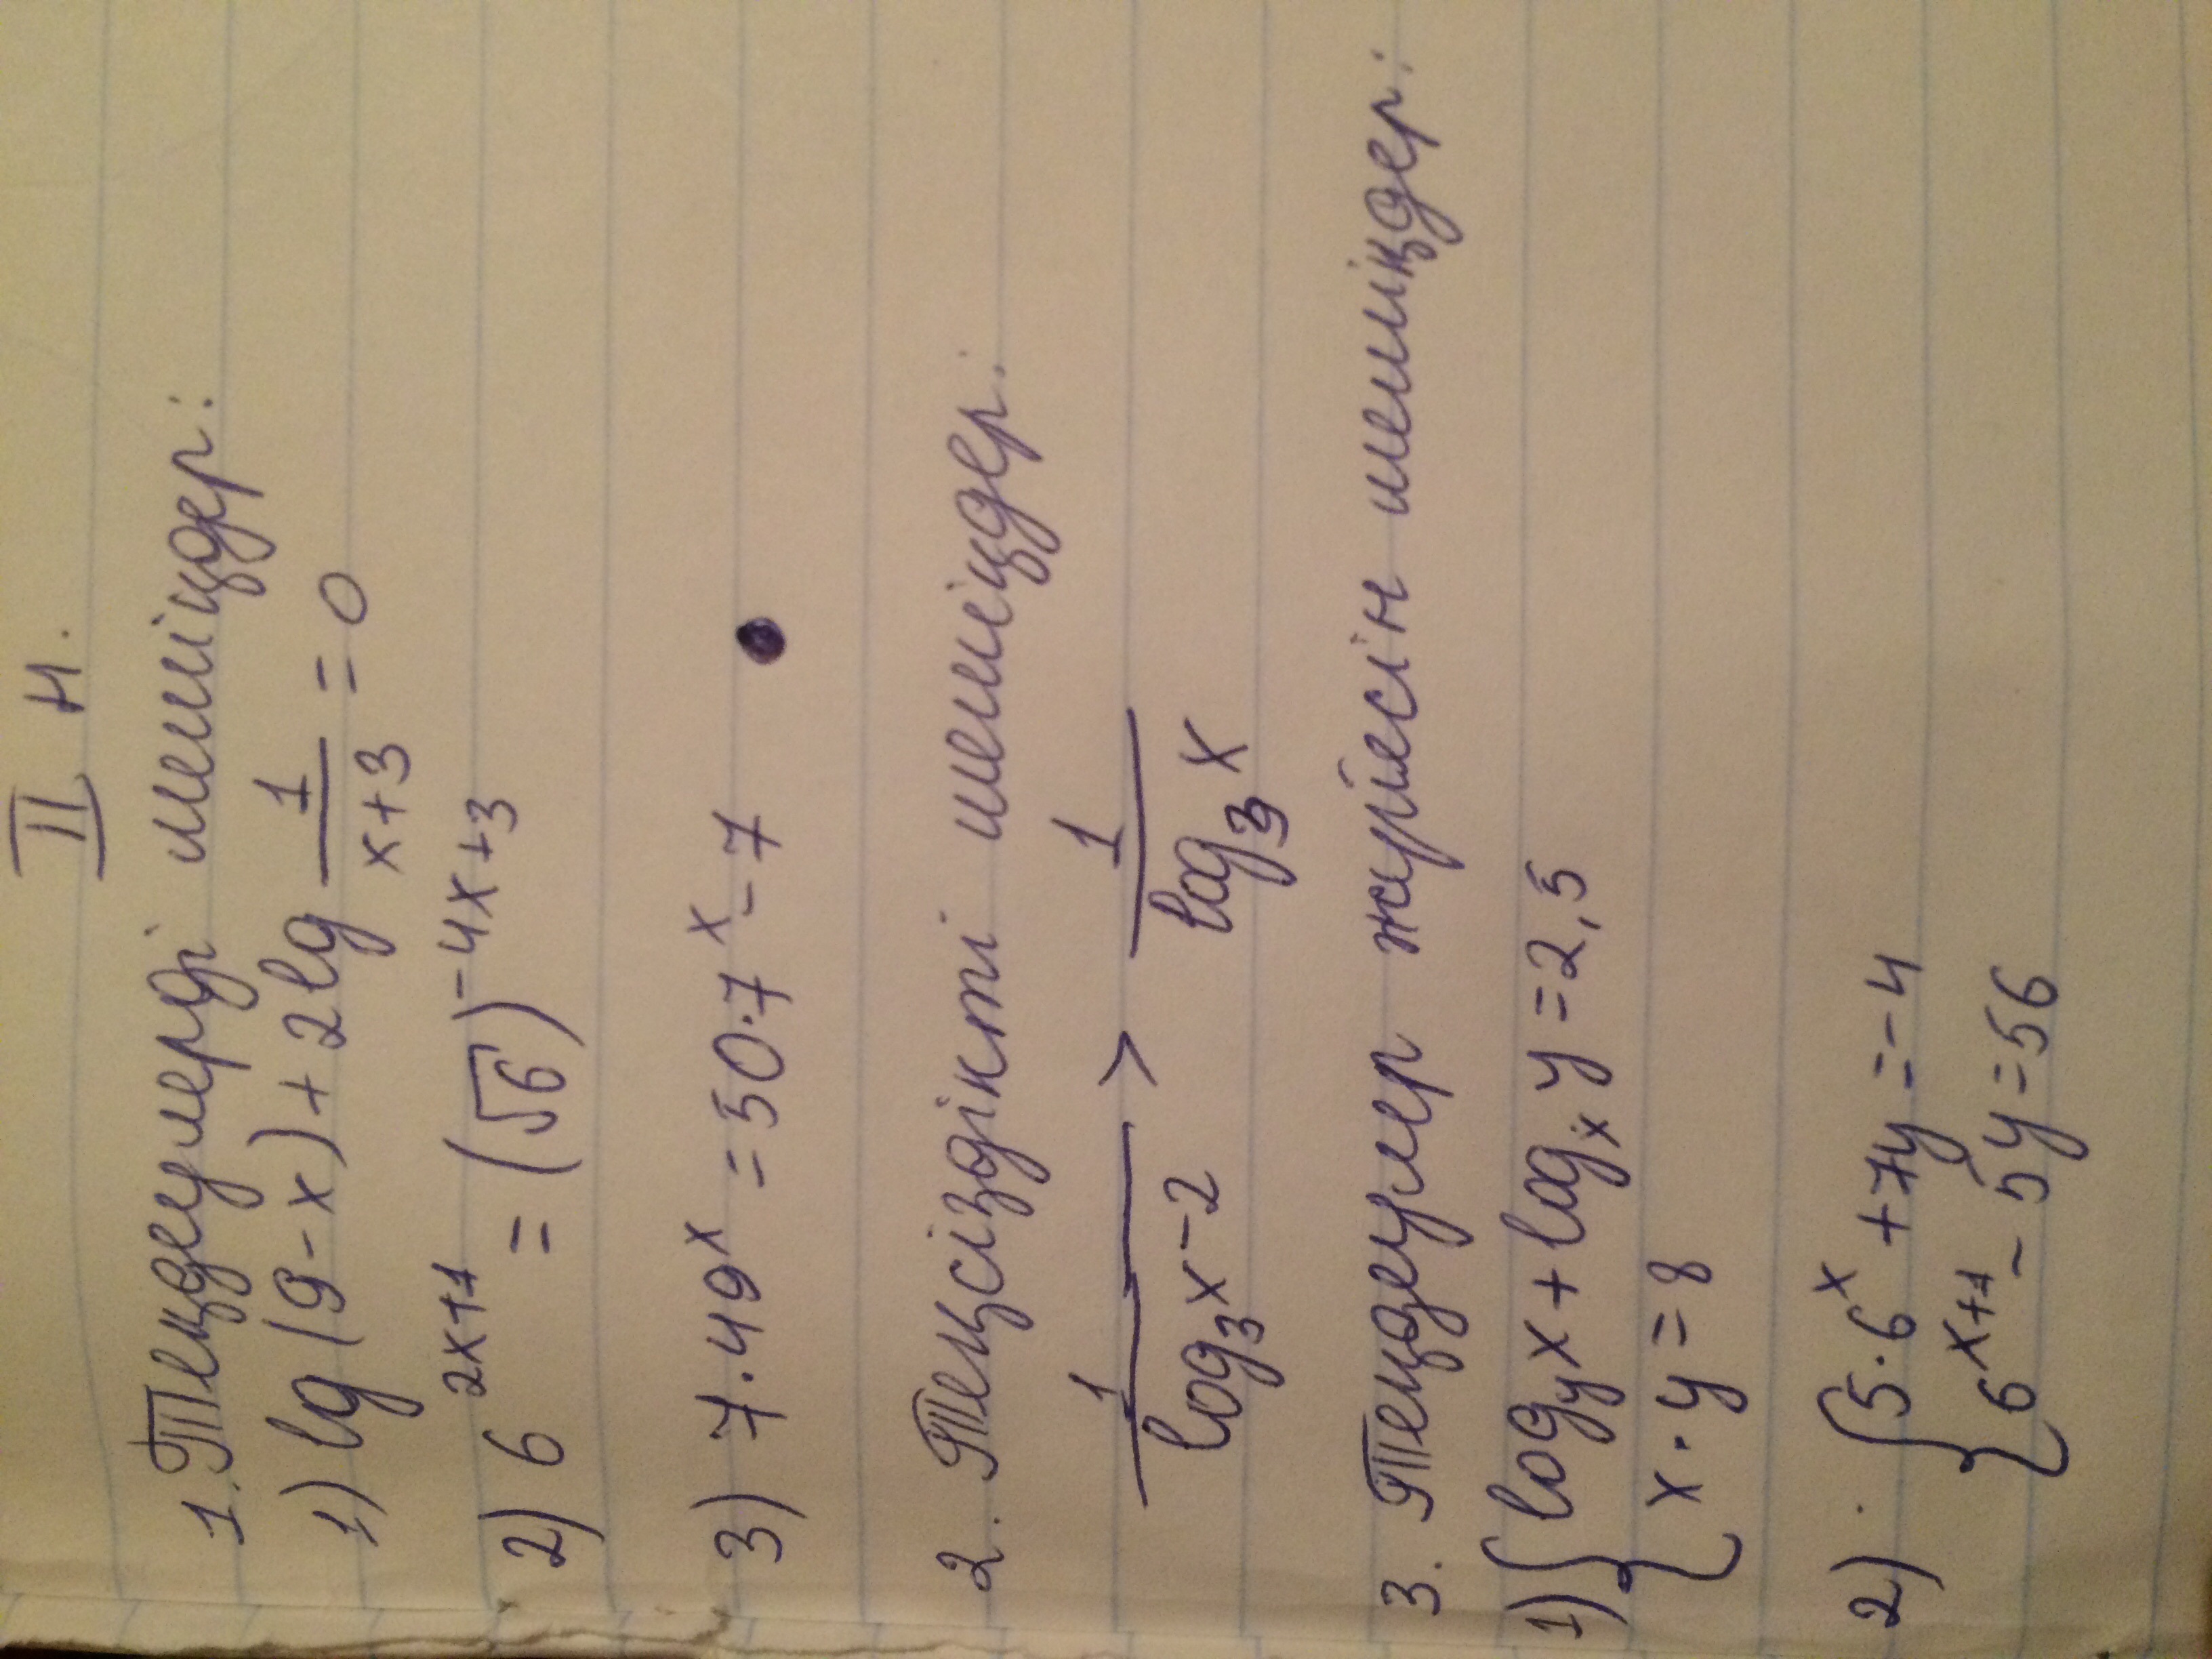 II н.
1. Теңдеулерді шешіңдер:
1) lg(9-x)+2lg 1/(x+3) = 0
2) 6^(2x+1) = (√6)^(-4x+3)
3) 7·49^x = 50·7^x - 7
2. Теңсіздікті шешіңдер:
1/(log₃x-2) > 1/(log₃x)
3. Теңдеулер жүйесін шешіңдер:
1) { log_y x + log_x y = 2,5
x·y = 8
2) { 5·6^x + 7y = -4
6^(x+1) - 5y = 56